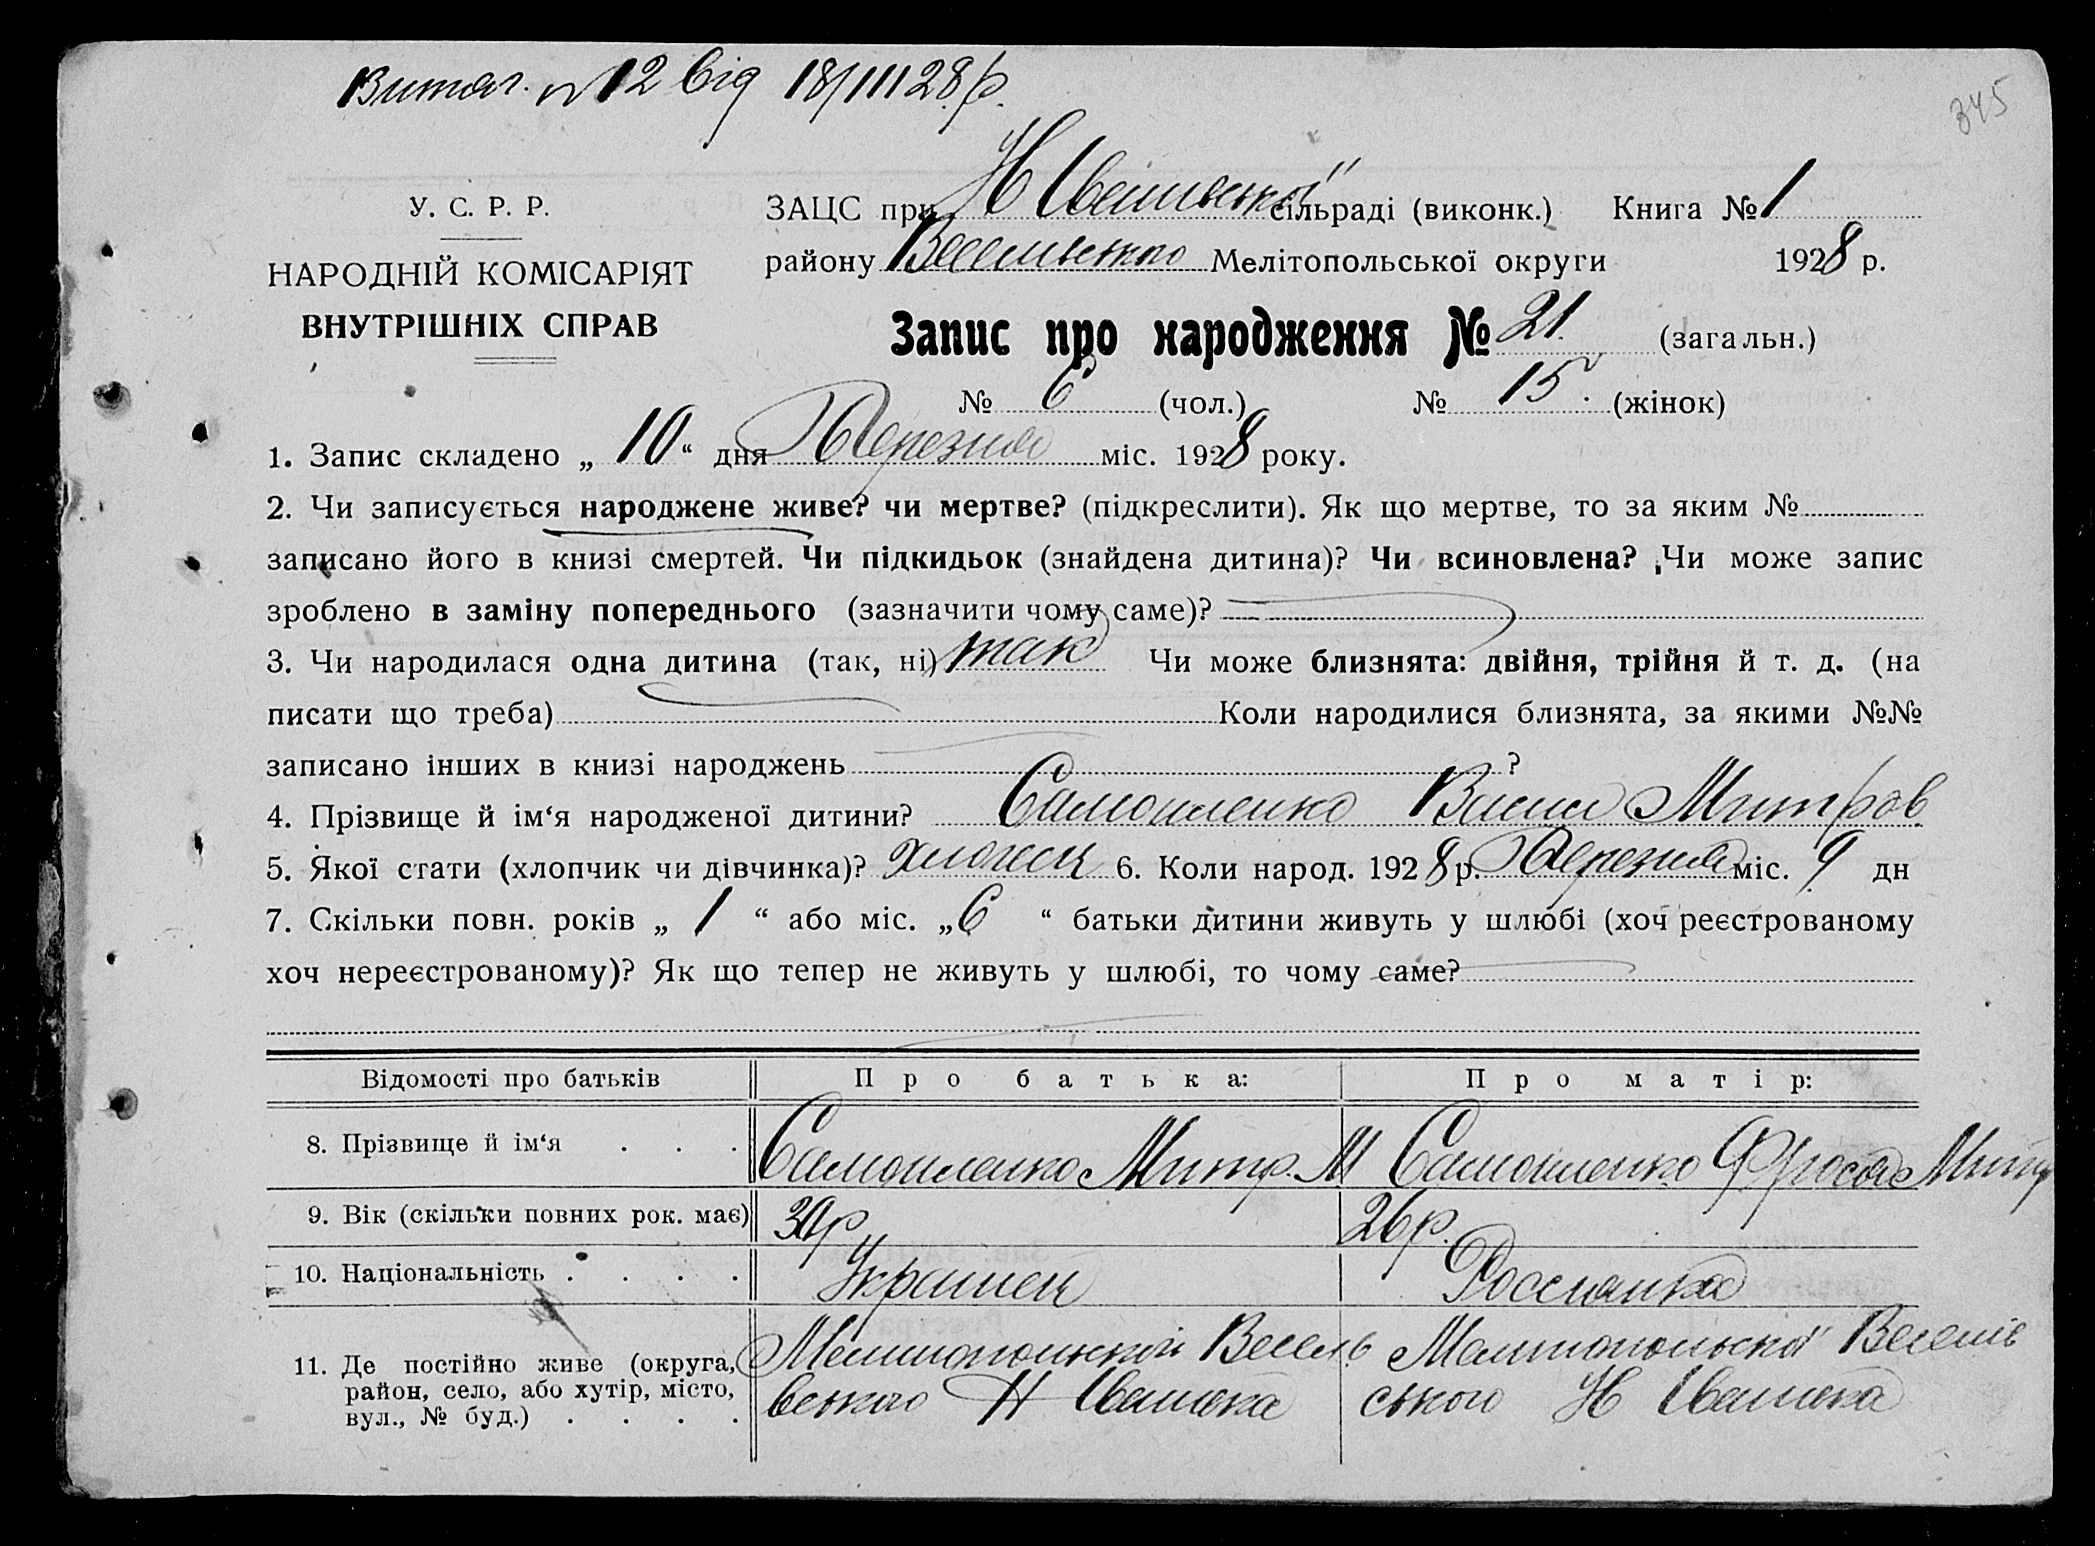 Витяг. № 12 від 18/III 28 р.
345
У. С. Р. Р.
НАРОДНІЙ КОМІСАРІЯТ
ВНУТРІШНІХ СПРАВ
ЗАЦС при Н сільраді (виконк.) Книга № 1
району Мелітопольської округи 1928 р.
Запис про народження № 21. (загальн.)
№ 6 (чол.) № 15. (жінок)
1. Запис складено „ 10 “ дня Березня міс. 1928 року.
2. Чи записується народжене живе? чи мертве? (підкреслити). Як що мертве, то за яким №
записано його в книзі смертей. Чи підкидьок (знайдена дитина)? Чи всиновлена? Чи може запис
зроблено в заміну попереднього (зазначити чому саме)? —
3. Чи народилася одна дитина (так, ні) так Чи може близнята: двійня, трійня й т. д. (на
писати що треба) Коли народилися близнята, за якими №№
записано інших в книзі народжень ?
4. Прізвище й ім‘я народженої дитини? Самойленко Васил Митров
5. Якої стати (хлопчик чи дівчинка)? хлопец 6. Коли народ. 1928 р. Березня міс. 9 дн
7. Скільки повн. років „ 1 “ або міс. „ 6 “ батьки дитини живуть у шлюбі (хоч реєстрованому
хоч нереєстрованому)? Як що тепер не живуть у шлюбі, то чому саме?
Відомості про батьків Про батька: Про матір:
8. Прізвище й ім‘я . . . Самойленко Митр. М Самойленко Фрося Митр
9. Вік (скільки повних рок. має) 30р 26р.
10. Національність . . . . Украинец Россиянка
11. Де постійно живе (округа,
район, село, або хутір, місто,
вул., № буд.) . . . .
Мелитопольской Весель
вського Н Ивановка
Мелитопольскої Веселів
ського Н Ивановка